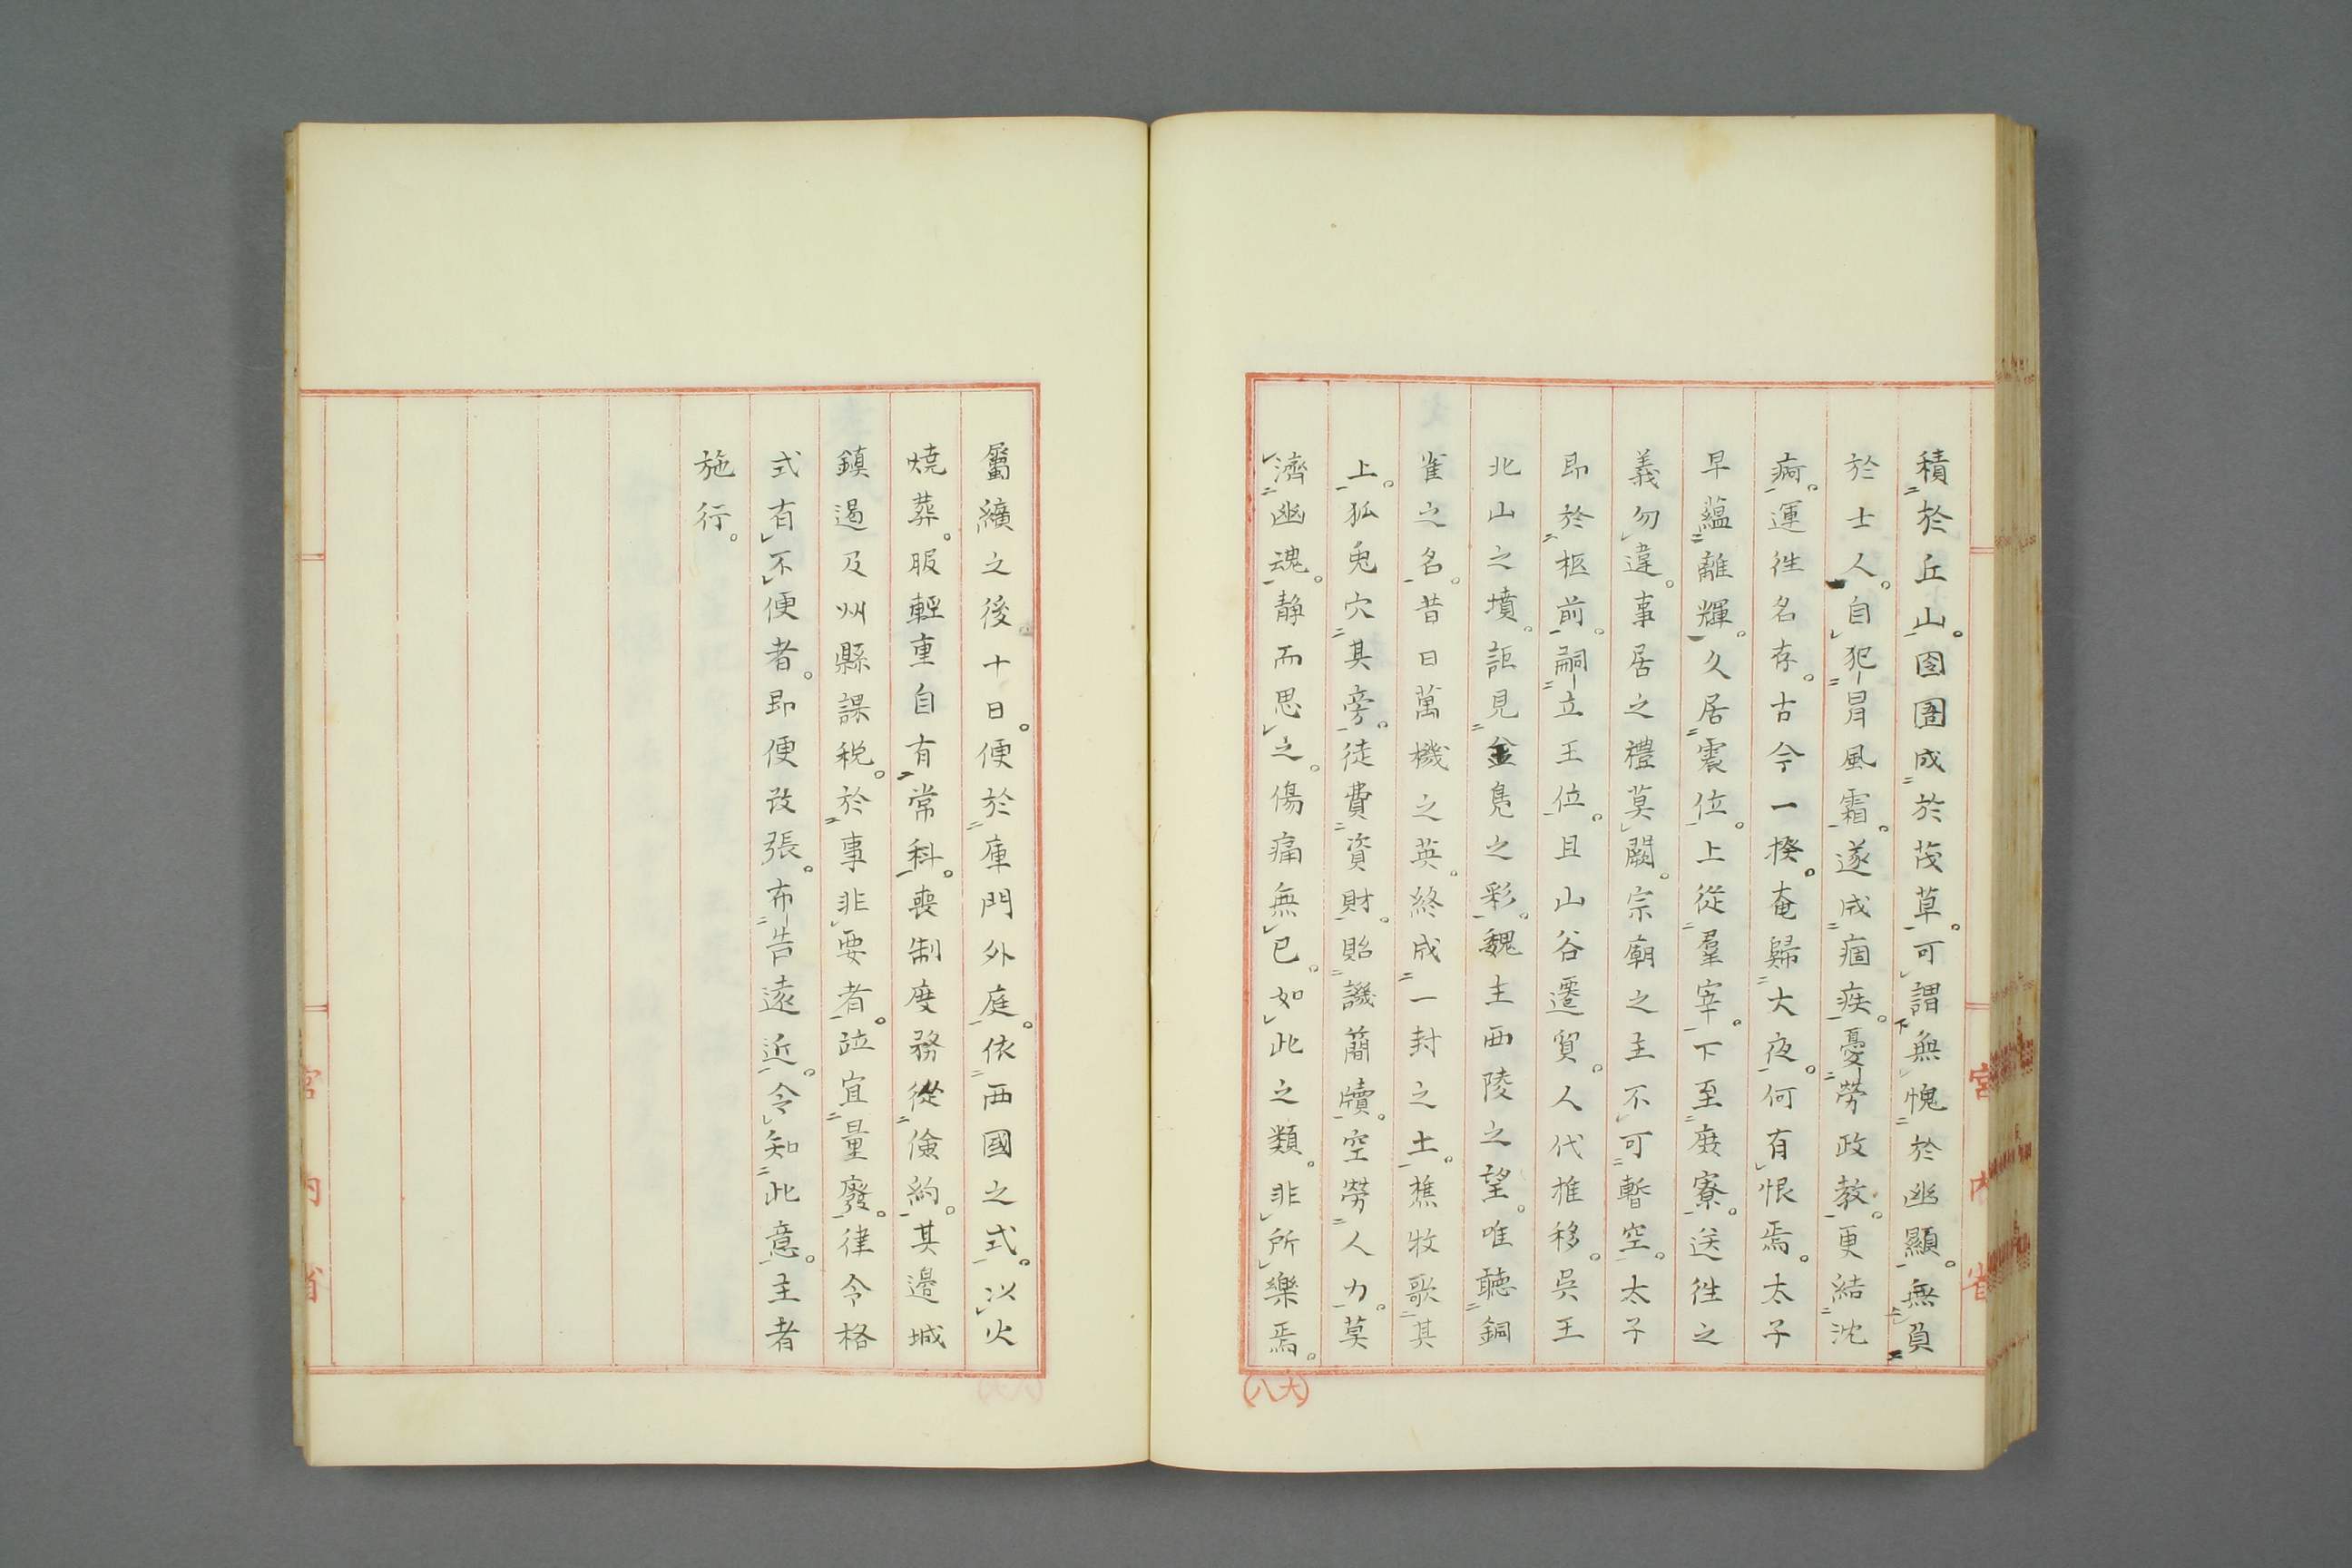 積於丘山。囹圄成於茂草。可謂無愧於幽顯。無負
於士人。自犯冒風霜。遂成痼疾。憂勞政教。更結沈
痾。運徃名存。古今一揆。奄歸大夜。何有恨焉。太子
早蘊離輝。久居震位。上從羣宰。下至庶寮。送徃之
義勿違。事居之禮莫闕。宗廟之主不可暫空。太子
即於柩前。嗣立王位。且山谷遷貿。人代推移。吳王
北山之墳。詎見金鳧之彩。魏主西陵之望。唯聽銅
雀之名。昔日萬機之英。終成一封之土。樵牧歌其
上。狐兎穴其旁。徒費資財。貽譏簡牘。空勞人力。莫
濟幽魂。静而思之。傷痛無已。如此之類。非所樂焉。
屬纊之後十日。便於庫門外庭。依西國之式。以火
燒葬。服輕重自有常科。喪制度務從儉約。其邊城
鎮遏及州縣課税。於事非要者。竝宜量廢。律令格
式有不便者。即便改張。布告遠近。令知此意。主者
施行。
宮内省
(八大)
宮内省